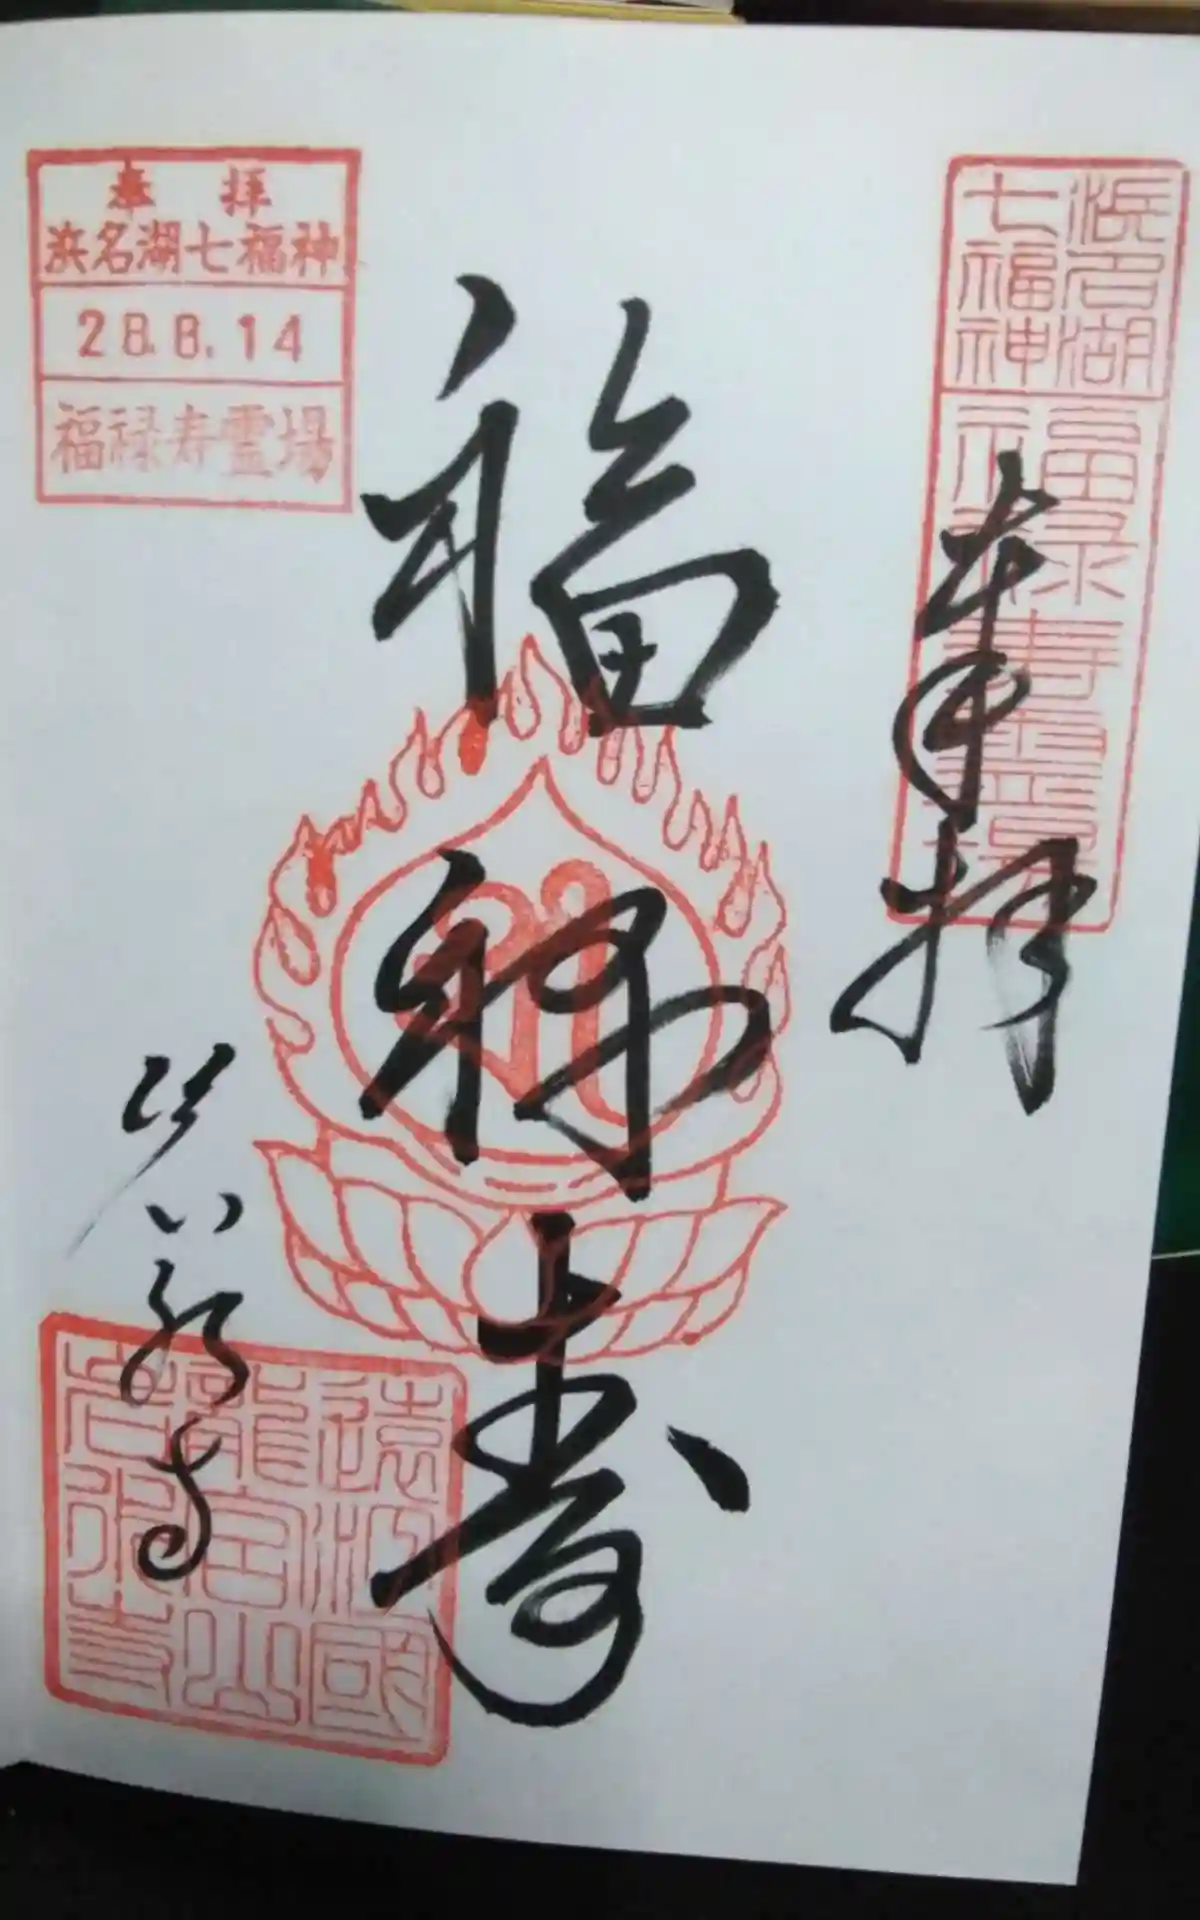 浜名湖
七福神
福禄寿霊場
奉拝
福禄寿
奉拝
浜名湖七福神
28.8.14
福禄寿霊場
遠江國
龍宮山
岩水寺